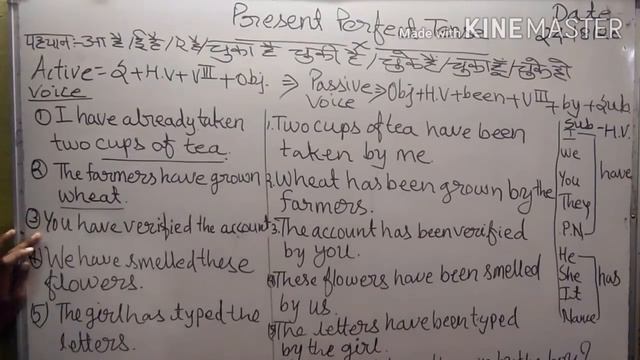 Present Perfect Tense
Date
Made with KINEMASTER
पहचान:- आ है/ई है/ए है/चुका है चुकी है/चुके है/चुका हूँ/चुके हो
Active = S + H.V + VIII + Obj. ⇒ Passive ⇒ Obj + H.V + been + VIII + by + Sub
Voice
Voice
① I have already taken
two cups of tea.
② The farmers have grown
wheat.
③ You have verified the account
④ We have smelled these
flowers.
⑤ The girl has typed the
letters.
1. Two cups of tea have been
taken by me.
2. Wheat has been grown by the
farmers.
3. The account has been verified
by you.
④ These flowers have been smelled
by us.
⑤ The letters have been typed
by the girl.
Sub - H.V.
I
We
You
They
P.N
have
He
She
It
Name
has